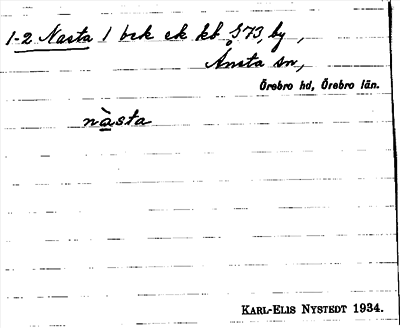 1-2 Nasta 1 bck ek kb 573, by,
Ånsta sn,
Örebro hd, Örebro län.
nàsta
KARL-ELIS NYSTEDT 1934.